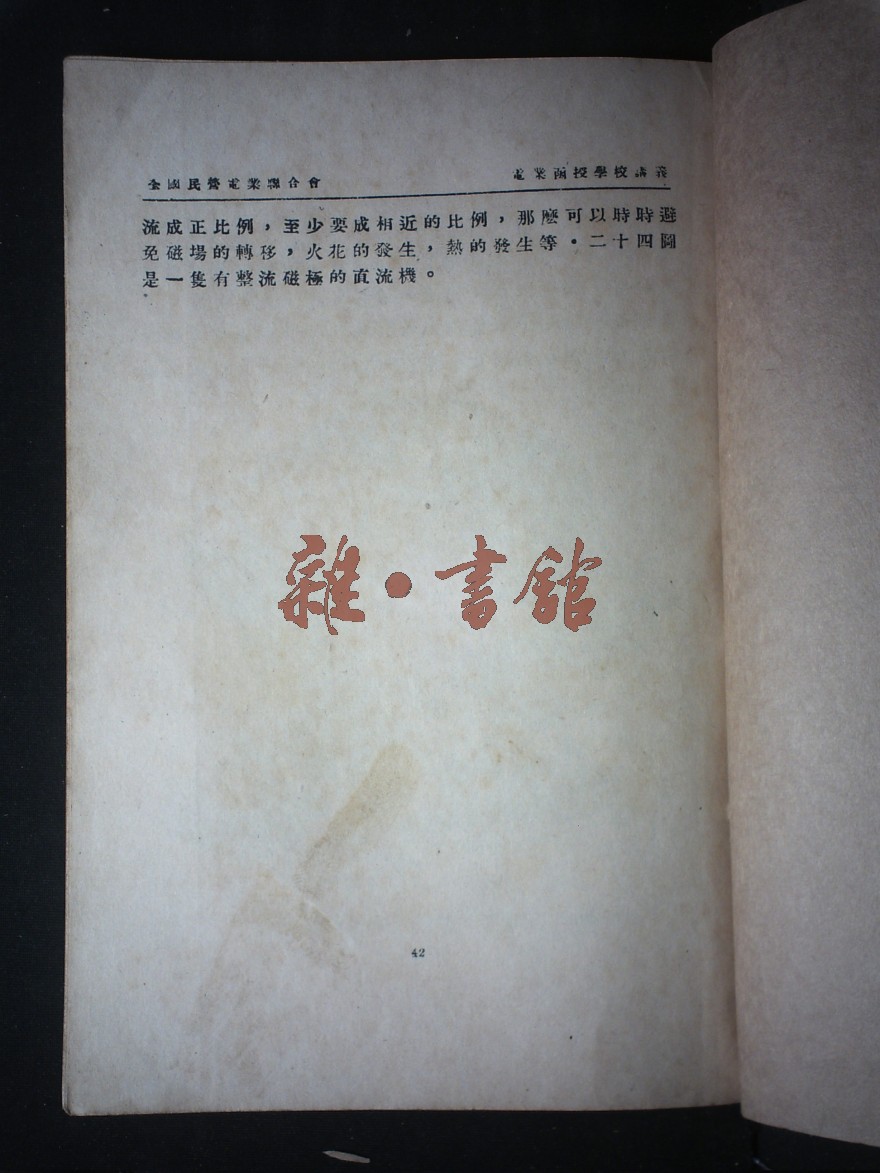 全國民營電業聯合會 電業函授學校講義
流成正比例，至少要成相近的比例，那麽可以時時避
免磁場的轉移，火花的發生，熱的發生等．二十四圖
是一隻有整流磁極的直流機。
雜·書館
42